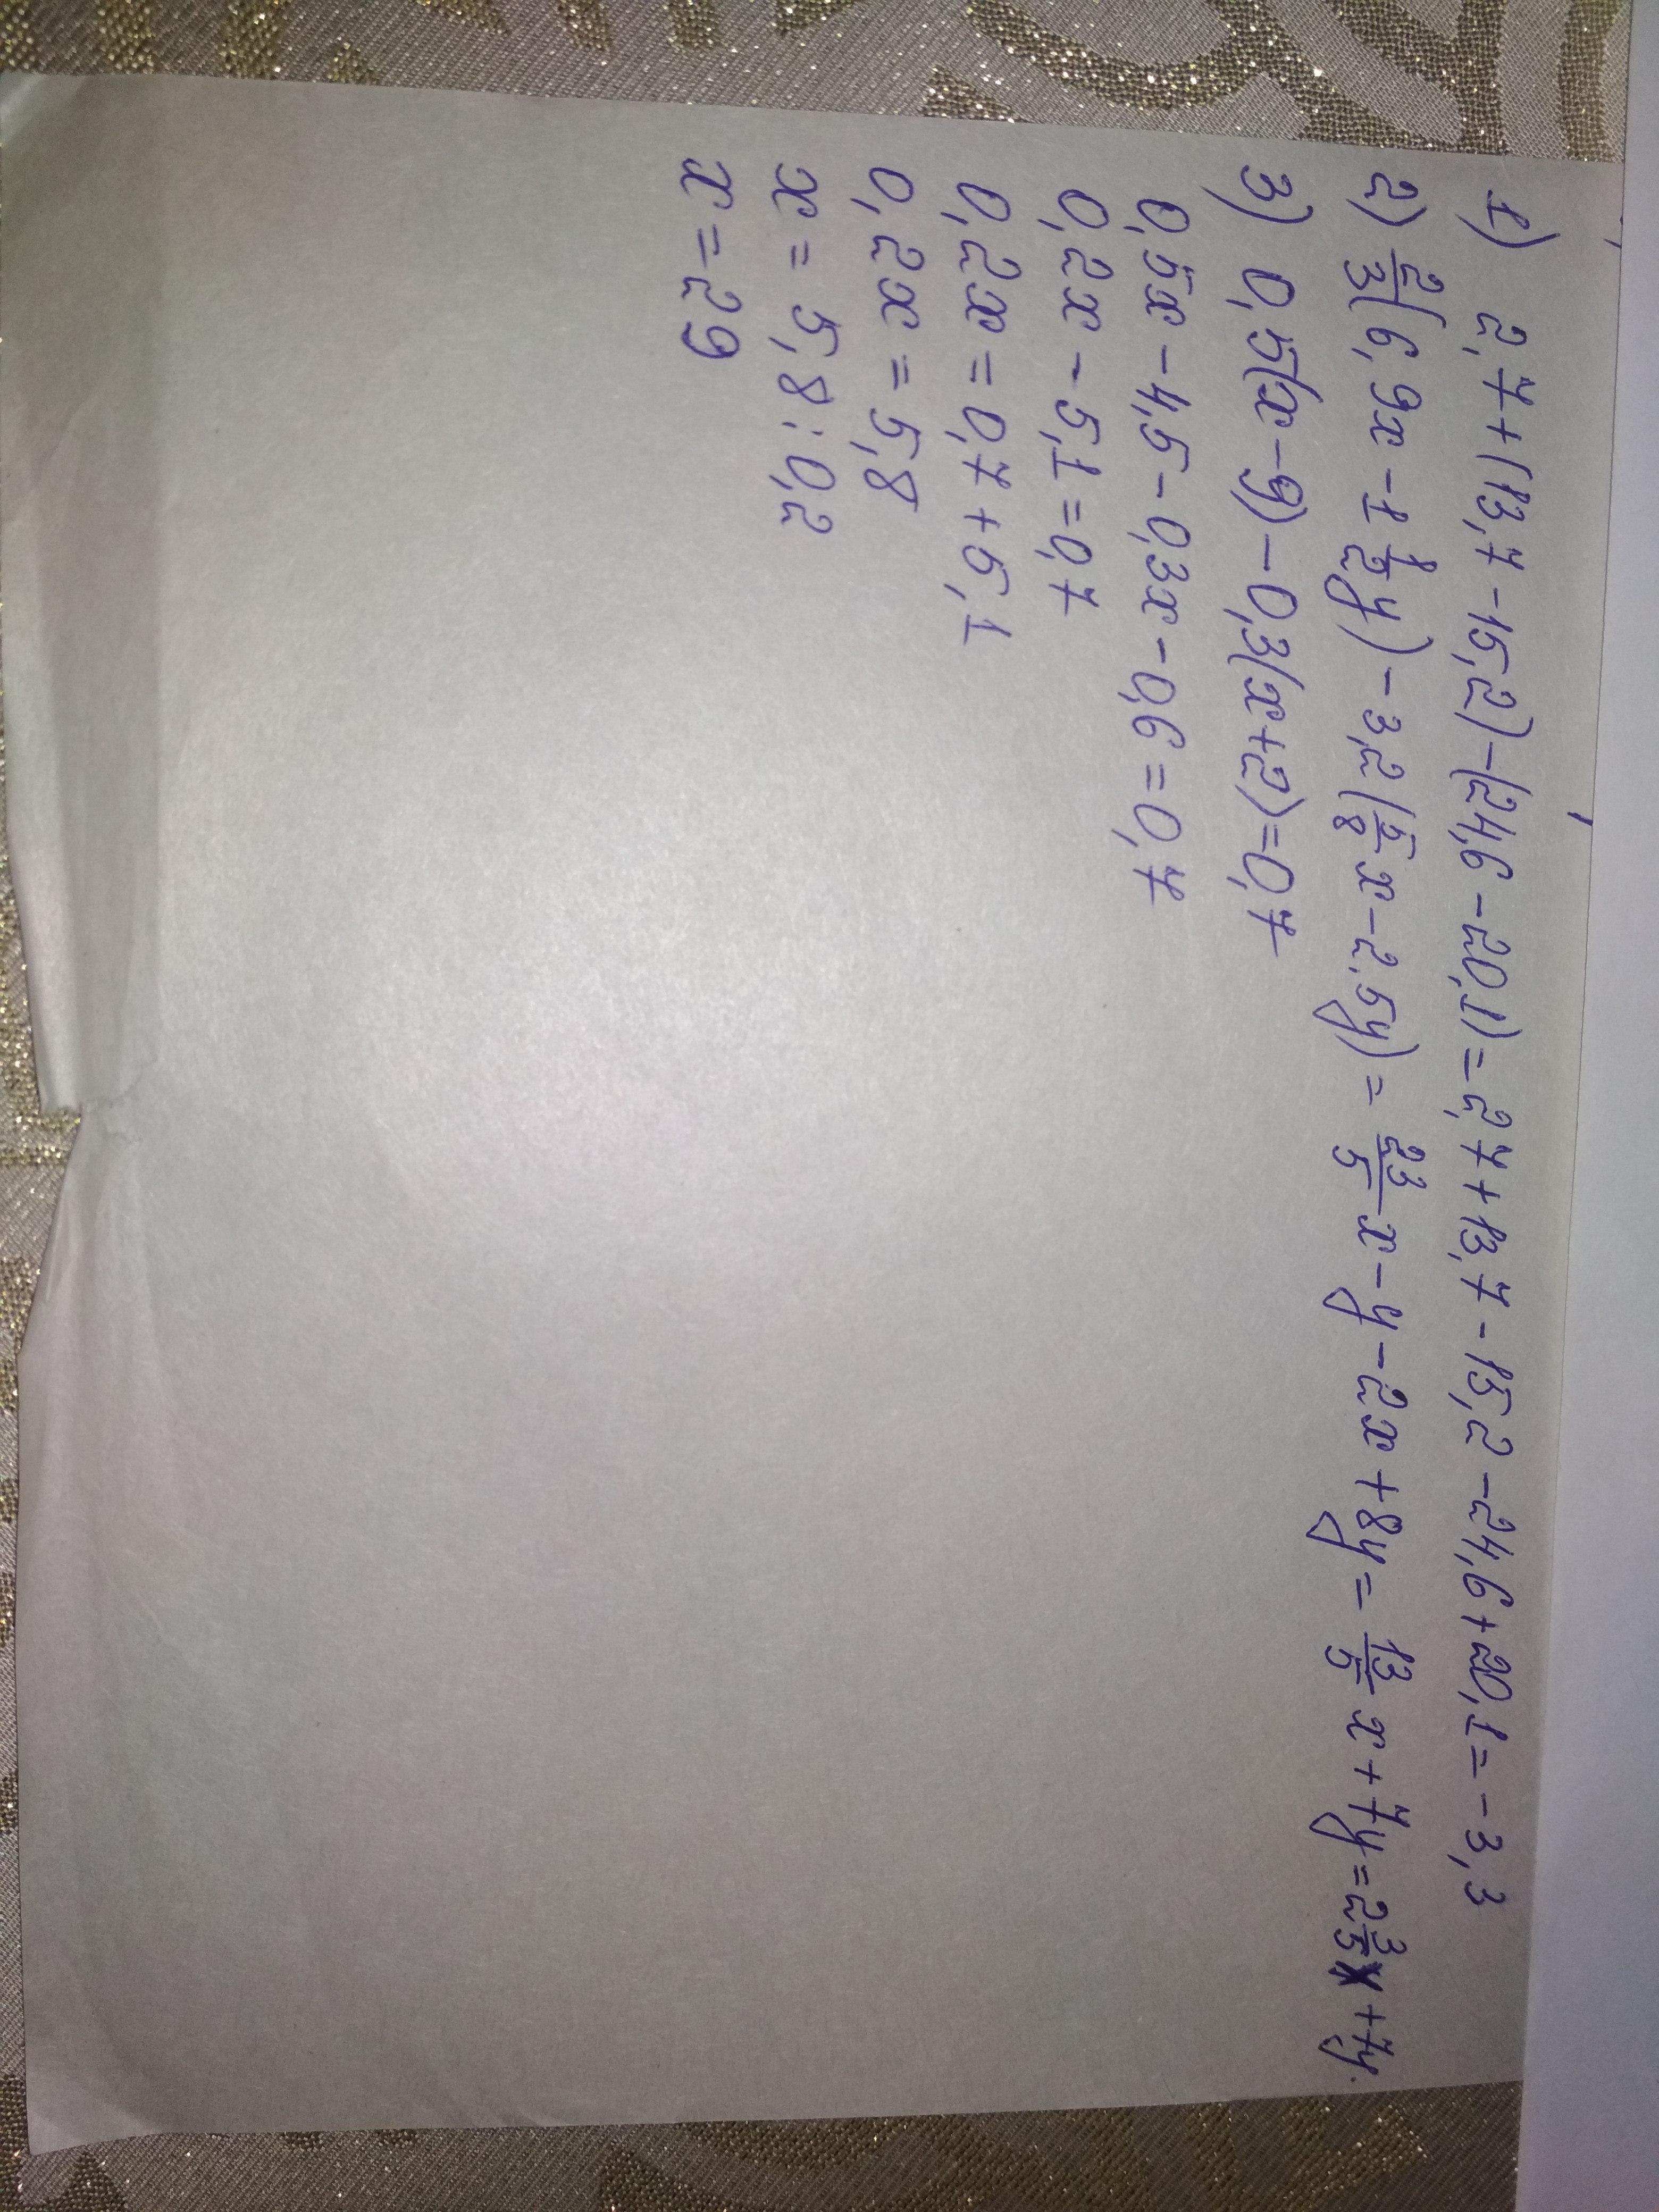 1) 2,7+(13,7-15,2)-(24,6-20,1)=2,7+13,7-15,2-24,6+20,1=-3,3
2) 2/3(6,9x-1 1/2y)-3,2(5/8x-2,5y)=23/5x-y-2x+8y=13/5x+7y=2 3/5x+7y.
3) 0,5(x-9)-0,3(x+2)=0,7
0,5x-4,5-0,3x-0,6=0,7
0,2x-5,1=0,7
0,2x=0,7+5,1
0,2x=5,8
x=5,8:0,2
x=29